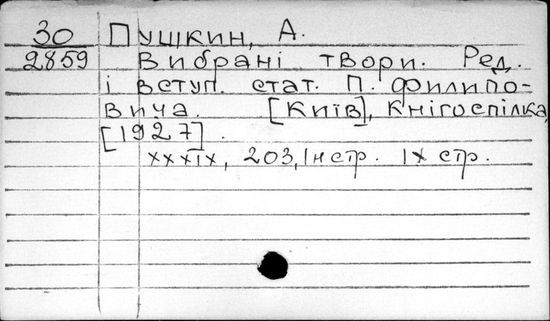 30 Пушкин, А.
2859 Вибрані твори. Ред.
і вступ. стат. П. Филипо-
вича. [Київ], Книгоспілка,
[1927].
XXXIX, 203, Iн стр. IX стр.